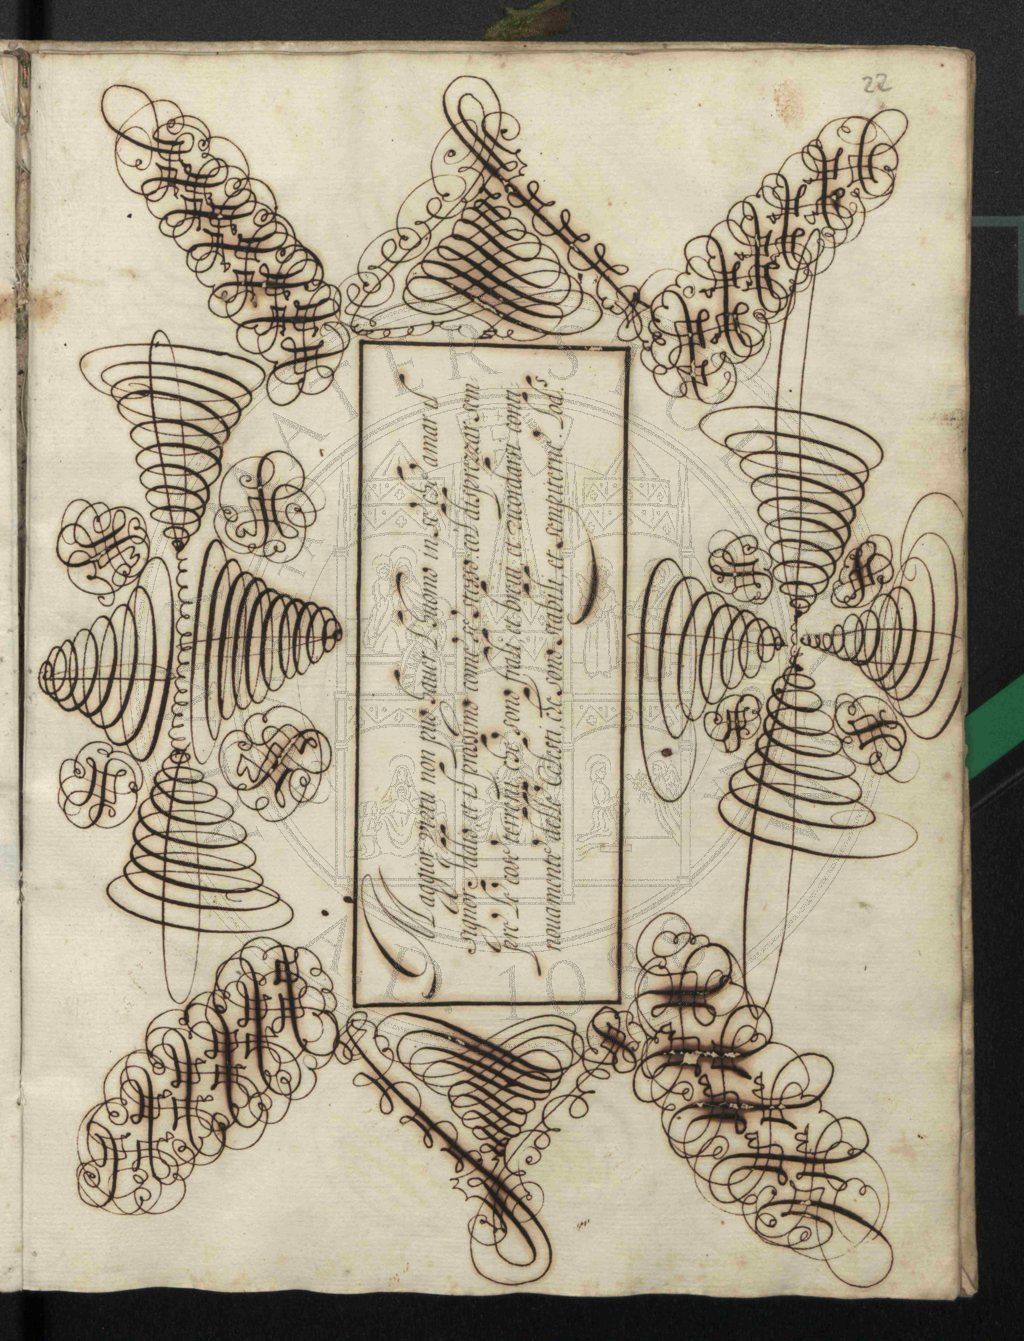 22
Maggior pietà non può hauer l'huomo in se che d'amar il
signore Iddio et il prossimo come se stesso col disprezzar sem
pre le cose terrene che sono frali, et breui et riccordarsi conti
nouamente delle Celesti che sono stabili, et sempiterne. Lod.s